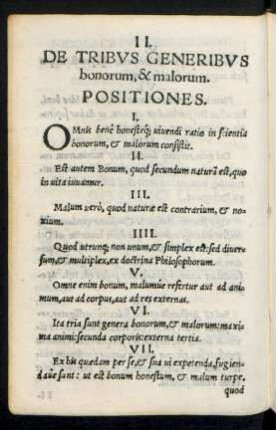 II.
DE TRIBVS GENERIBVS
bonorum, & malorum.
POSITIONES.
I.
OMnis benè honestéq; uiuendi ratio in scientia
bonorum, & malorum consistit.
II.
Est autem Bonum, quod secundum naturã est, quo
in uita iuuamur.
III.
Malum verò, quod naturæ est contrarium, & no-
xium.
IIII.
Quod utrunq; non unum, & simplex est: sed diuer-
sum, & multiplex, ex doctrina Philosophorum.
V.
Omne enim bonum, malumúe refertur aut ad ani-
mum, aut ad corpus, aut ad res externas.
VI.
Ita tria sunt genera bonorum, & malorum: maxi-
ma animi: secunda corporis: externa tertia.
VII.
Ex his quædam per se, & sua ui expetenda, fugien-
daúe sunt: ut est bonum honestum, & malum turpe.
quod